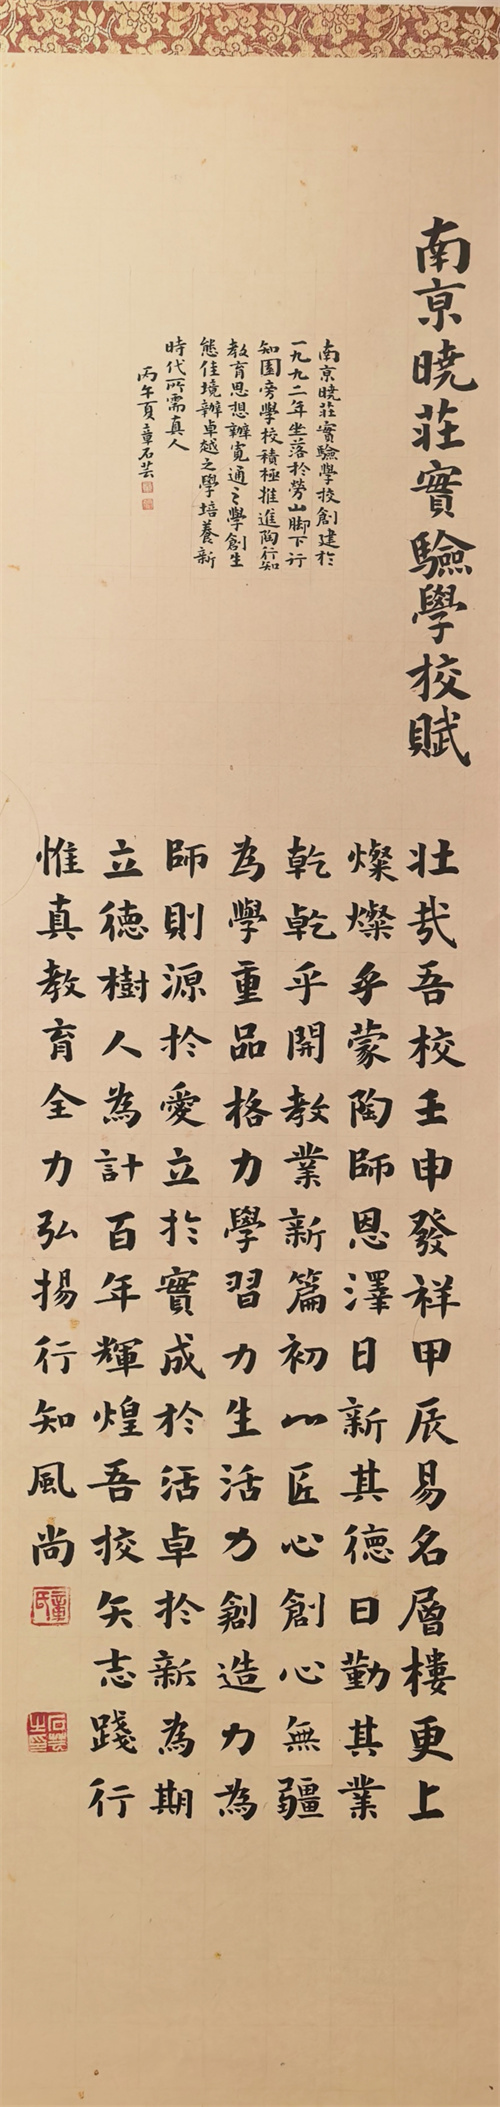 南京曉莊實驗學校賦
壯哉吾校壬申發祥甲辰易名層樓更上
燦燦乎蒙陶師恩澤日新其德日勤其業
乾乾乎開教業新篇初心匠心創心無疆
為學重品格力學習力生活力創造力為
師則源於愛立於實成於活卓於新為期
立德樹人為計百年輝煌吾校矢志踐行
惟真教育全力弘揚行知風尚
章氏
石芸之印
南京曉莊實驗學校創建於
一九九二年坐落於勞山腳下行
知園旁學校積極推進陶行知
教育思想辦寬通之學創生
態佳境辦卓越之學培養新
時代所需真人
丙午夏章石芸